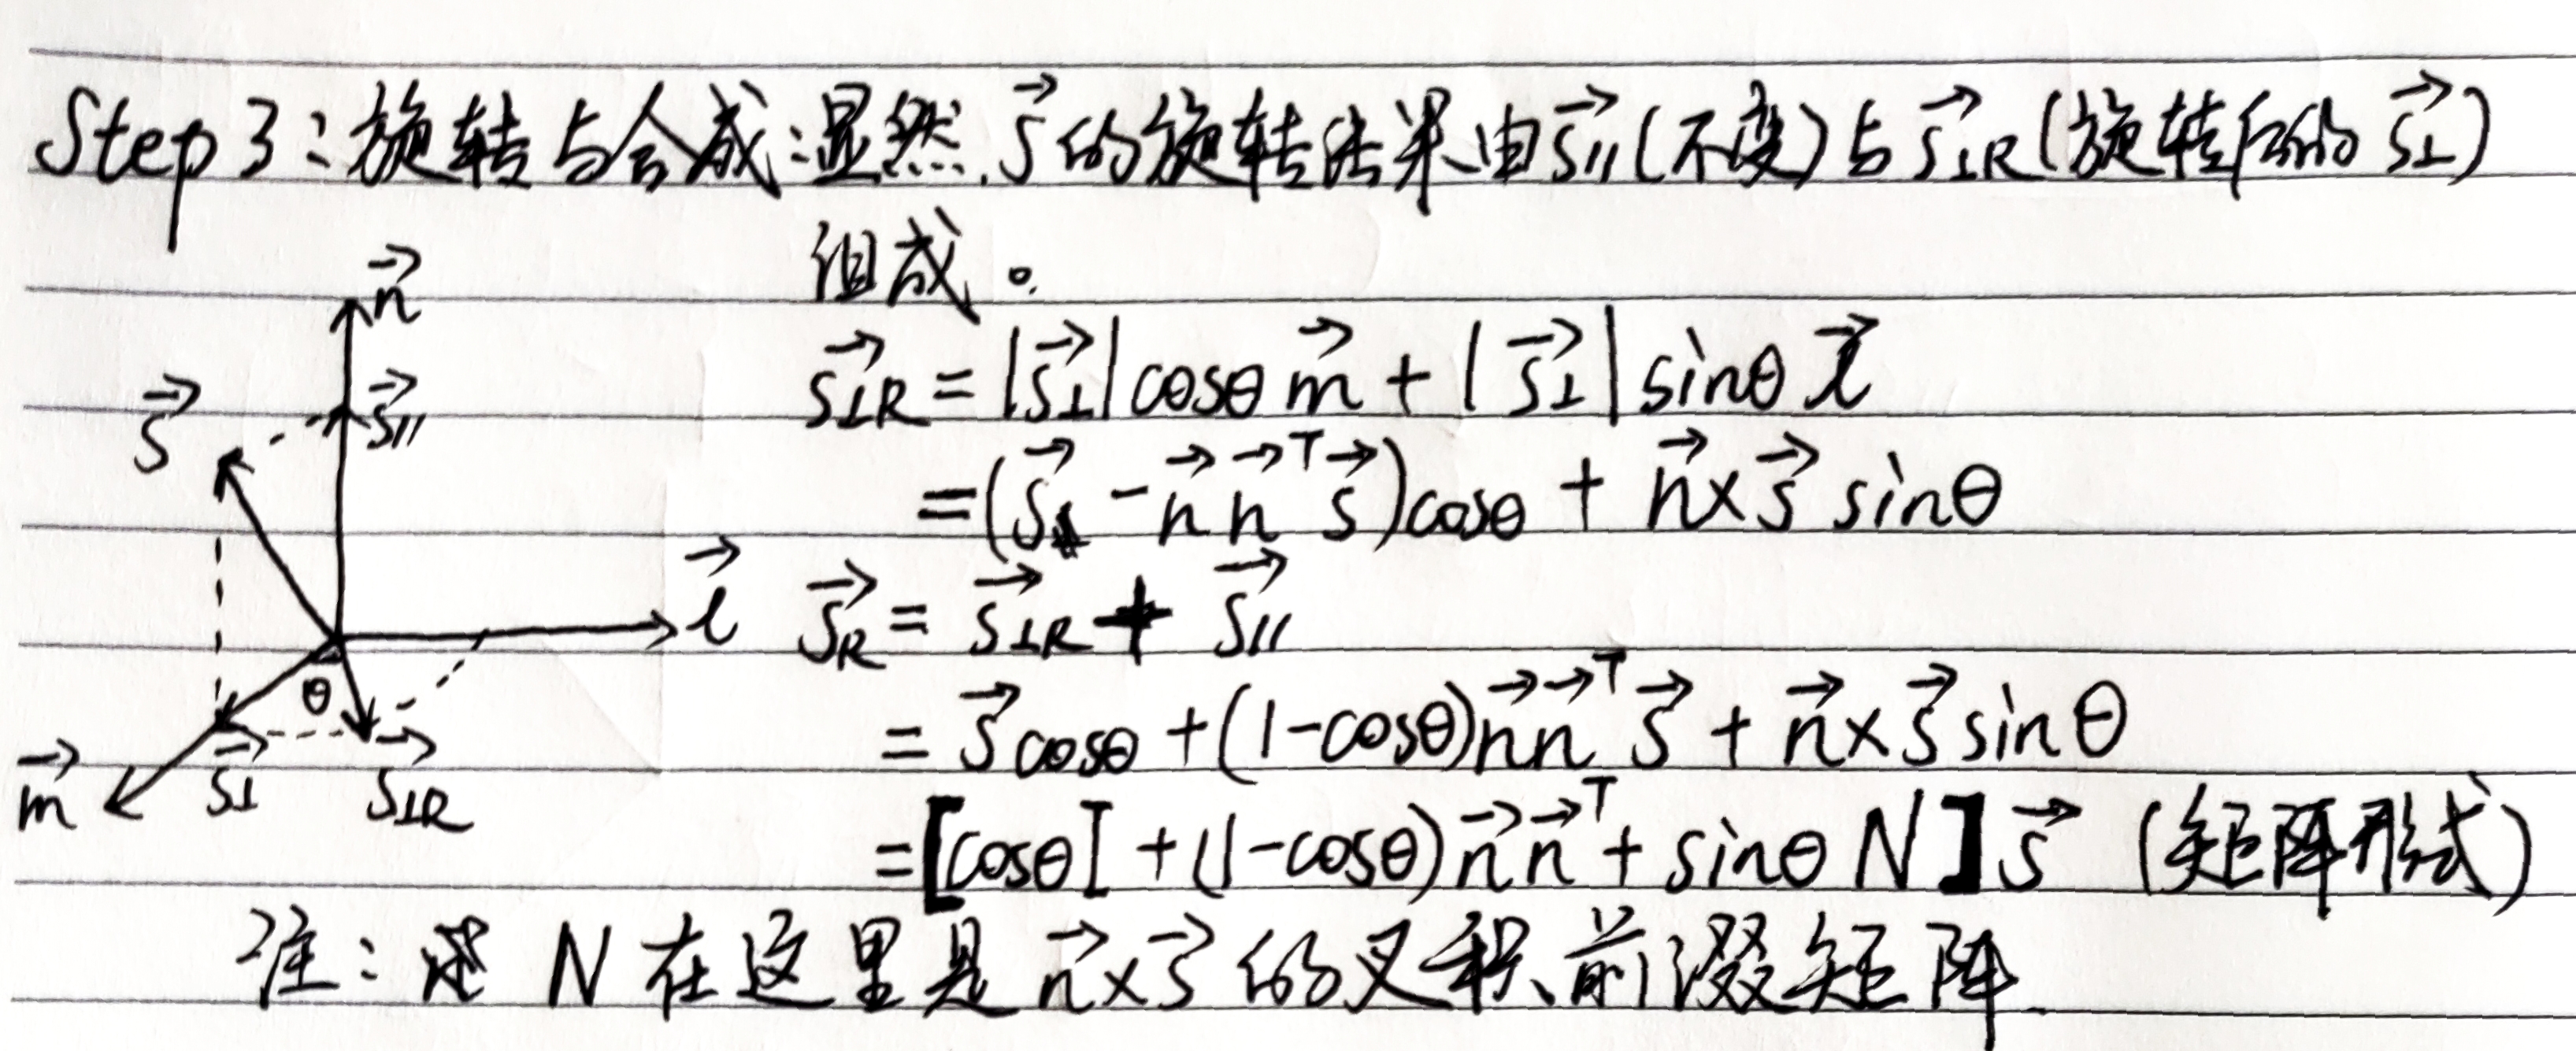 Step 3：旋转与合成：显然，s⃗的旋转结果由s⃗∥(不变)与s⃗⊥R(旋转后的s⃗⊥)
组成。
n⃗
s⃗⊥R = |s⃗⊥|cosθ m⃗ + |s⃗⊥|sinθ l⃗
s⃗
s⃗∥
= (s⃗ - n⃗n⃗ᵀs⃗)cosθ + n⃗×s⃗ sinθ
l⃗
s⃗R = s⃗⊥R + s⃗∥
θ
= s⃗cosθ + (1-cosθ)n⃗n⃗ᵀs⃗ + n⃗×s⃗ sinθ
m⃗
s⃗⊥
s⃗⊥R
= [cosθI + (1-cosθ)n⃗n⃗ᵀ + sinθ N]s⃗ (矩阵形式)
注：N在这里是n⃗×s⃗的叉积前缀矩阵